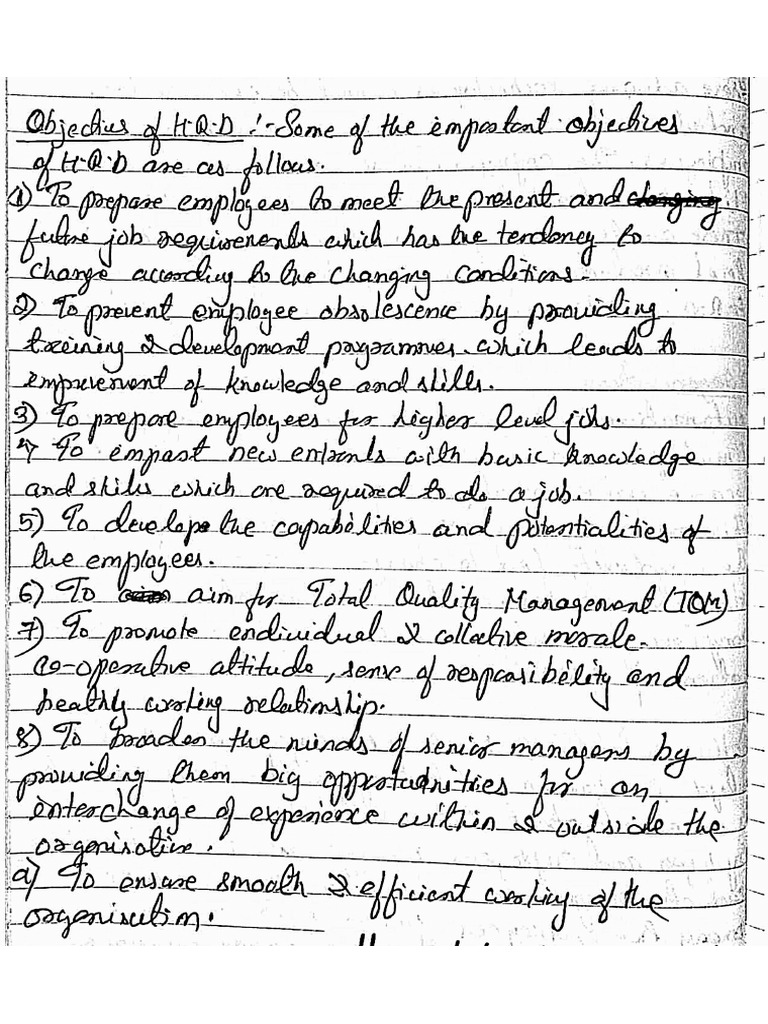 Objectives of H.R.D :- Some of the important objectives
of H.R.D are as follows.
1) To prepare employees to meet the present and changing
future job requirements which has the tendency to
change according to the changing conditions.
2) To prevent employee obsolescence by providing
training & development programmes which leads to
improvement of knowledge and skills.
3) To prepare employees for higher level jobs.
4) To impart new entrants with basic knowledge
and skills which are required to do a job.
5) To develop the capabilities and potentialities of
the employees.
6) To aim for Total Quality Management (TQM)
7) To promote individual & collective morale.
co-operative attitude, sense of responsibility and
healthy working relationship.
8) To broaden the minds of senior managers by
providing them big opportunities for an
interchange of experience within & outside the
organisation.
9) To ensure smooth & efficient working of the
organisation.